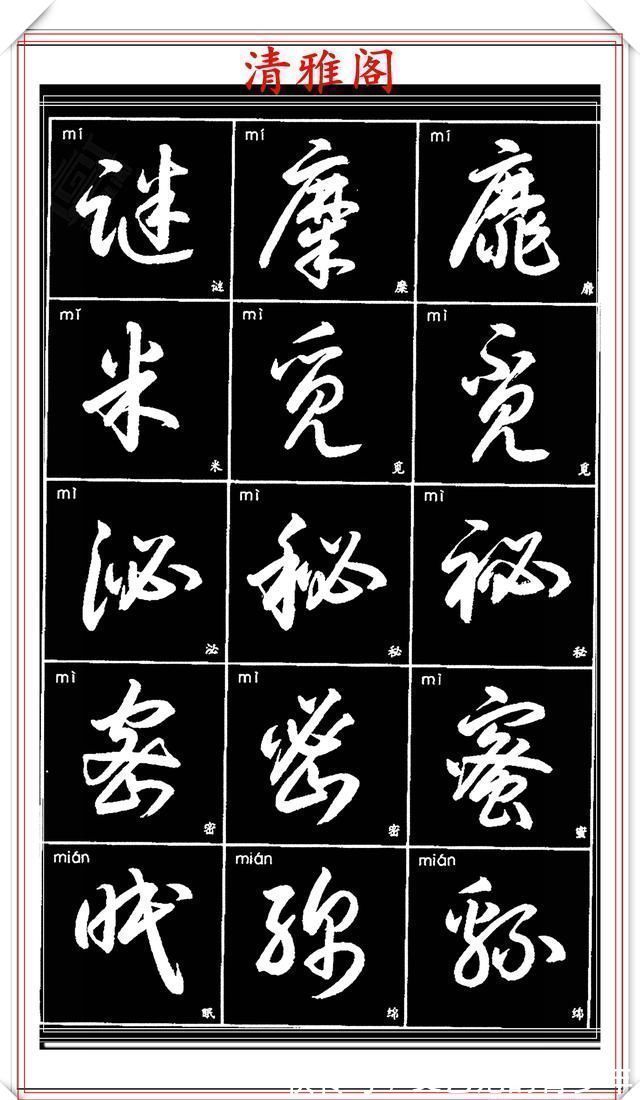 清雅阁
mí mí mí
谜 糜 靡
谜 糜 靡
mǐ mì mì
米 觅 觅
米 觅 觅
mì mì mì
泌 秘 祕
泌 秘 秘
mì mì mì
密 密 蜜
密 密 蜜
mián mián mián
眠 绵 緜
眠 绵 绵